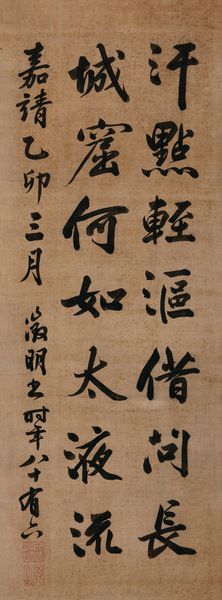 汗點輕漚借問長
城窟何如太液流
嘉靖乙卯三月 徵明書時年八十有六